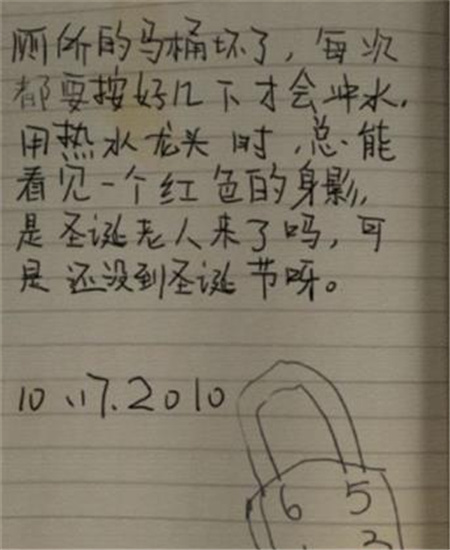 厕所的马桶坏了，每次
都要按好几下才会冲水.
用热水龙头时，总能
看见一个红色的身影，
是圣诞老人来了吗，可
是还没到圣诞节呀。
10.17.2010
6 5
3